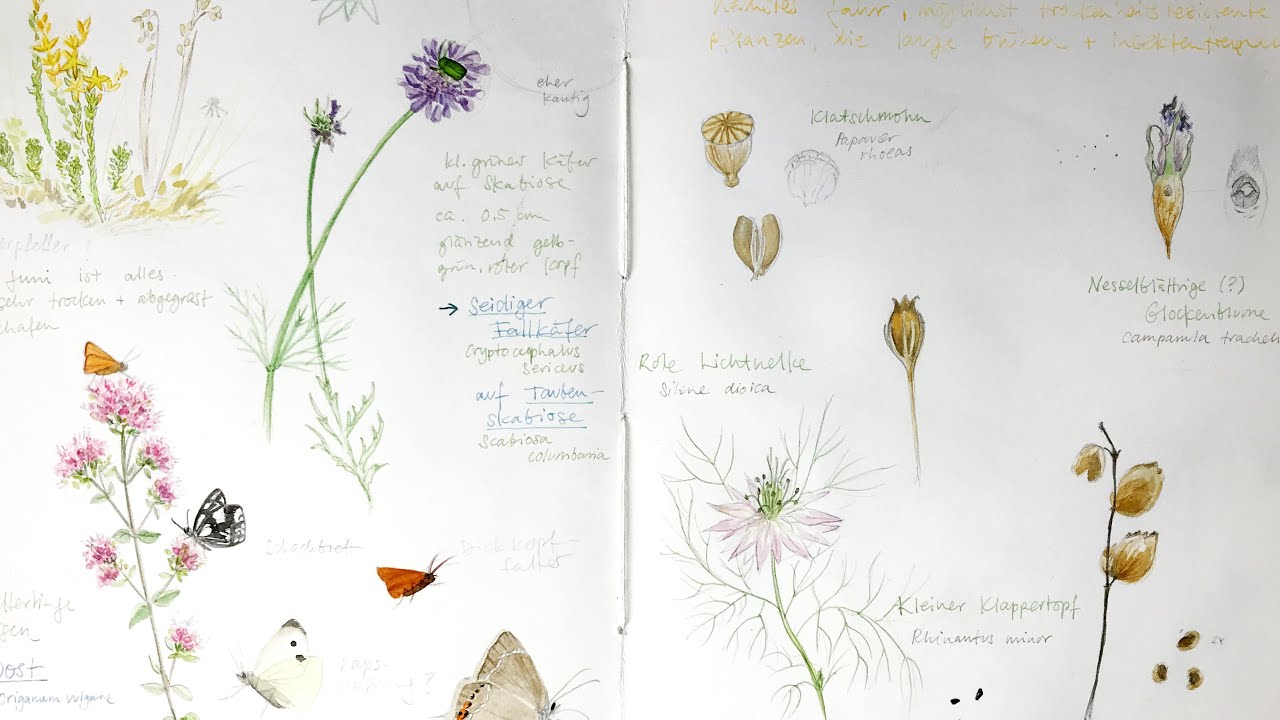 eher
kantig
kl. grüner Käfer
auf Skabiose
ca. 0.5 cm
glänzend gelb-
grün, roter Kopf
→ Seidiger
Fallkäfer
Cryptocephalus
sericeus
auf Tauben-
skabiose
Scabiosa
columbaria
Juni ist alles
sehr trocken + abgegrast
Schachbrett
Dickkopf-
falter
Dost
Origanum vulgare
nächstes Jahr, möglichst trockenheitsresistente
Pflanzen, die lange blühen +
Klatschmohn
Papaver
rhoeas
Nesselblättrige (?)
Glockenblume
Campanula trachel
Rote Lichtnelke
Silene dioica
Kleiner Klappertopf
Rhinantus minor